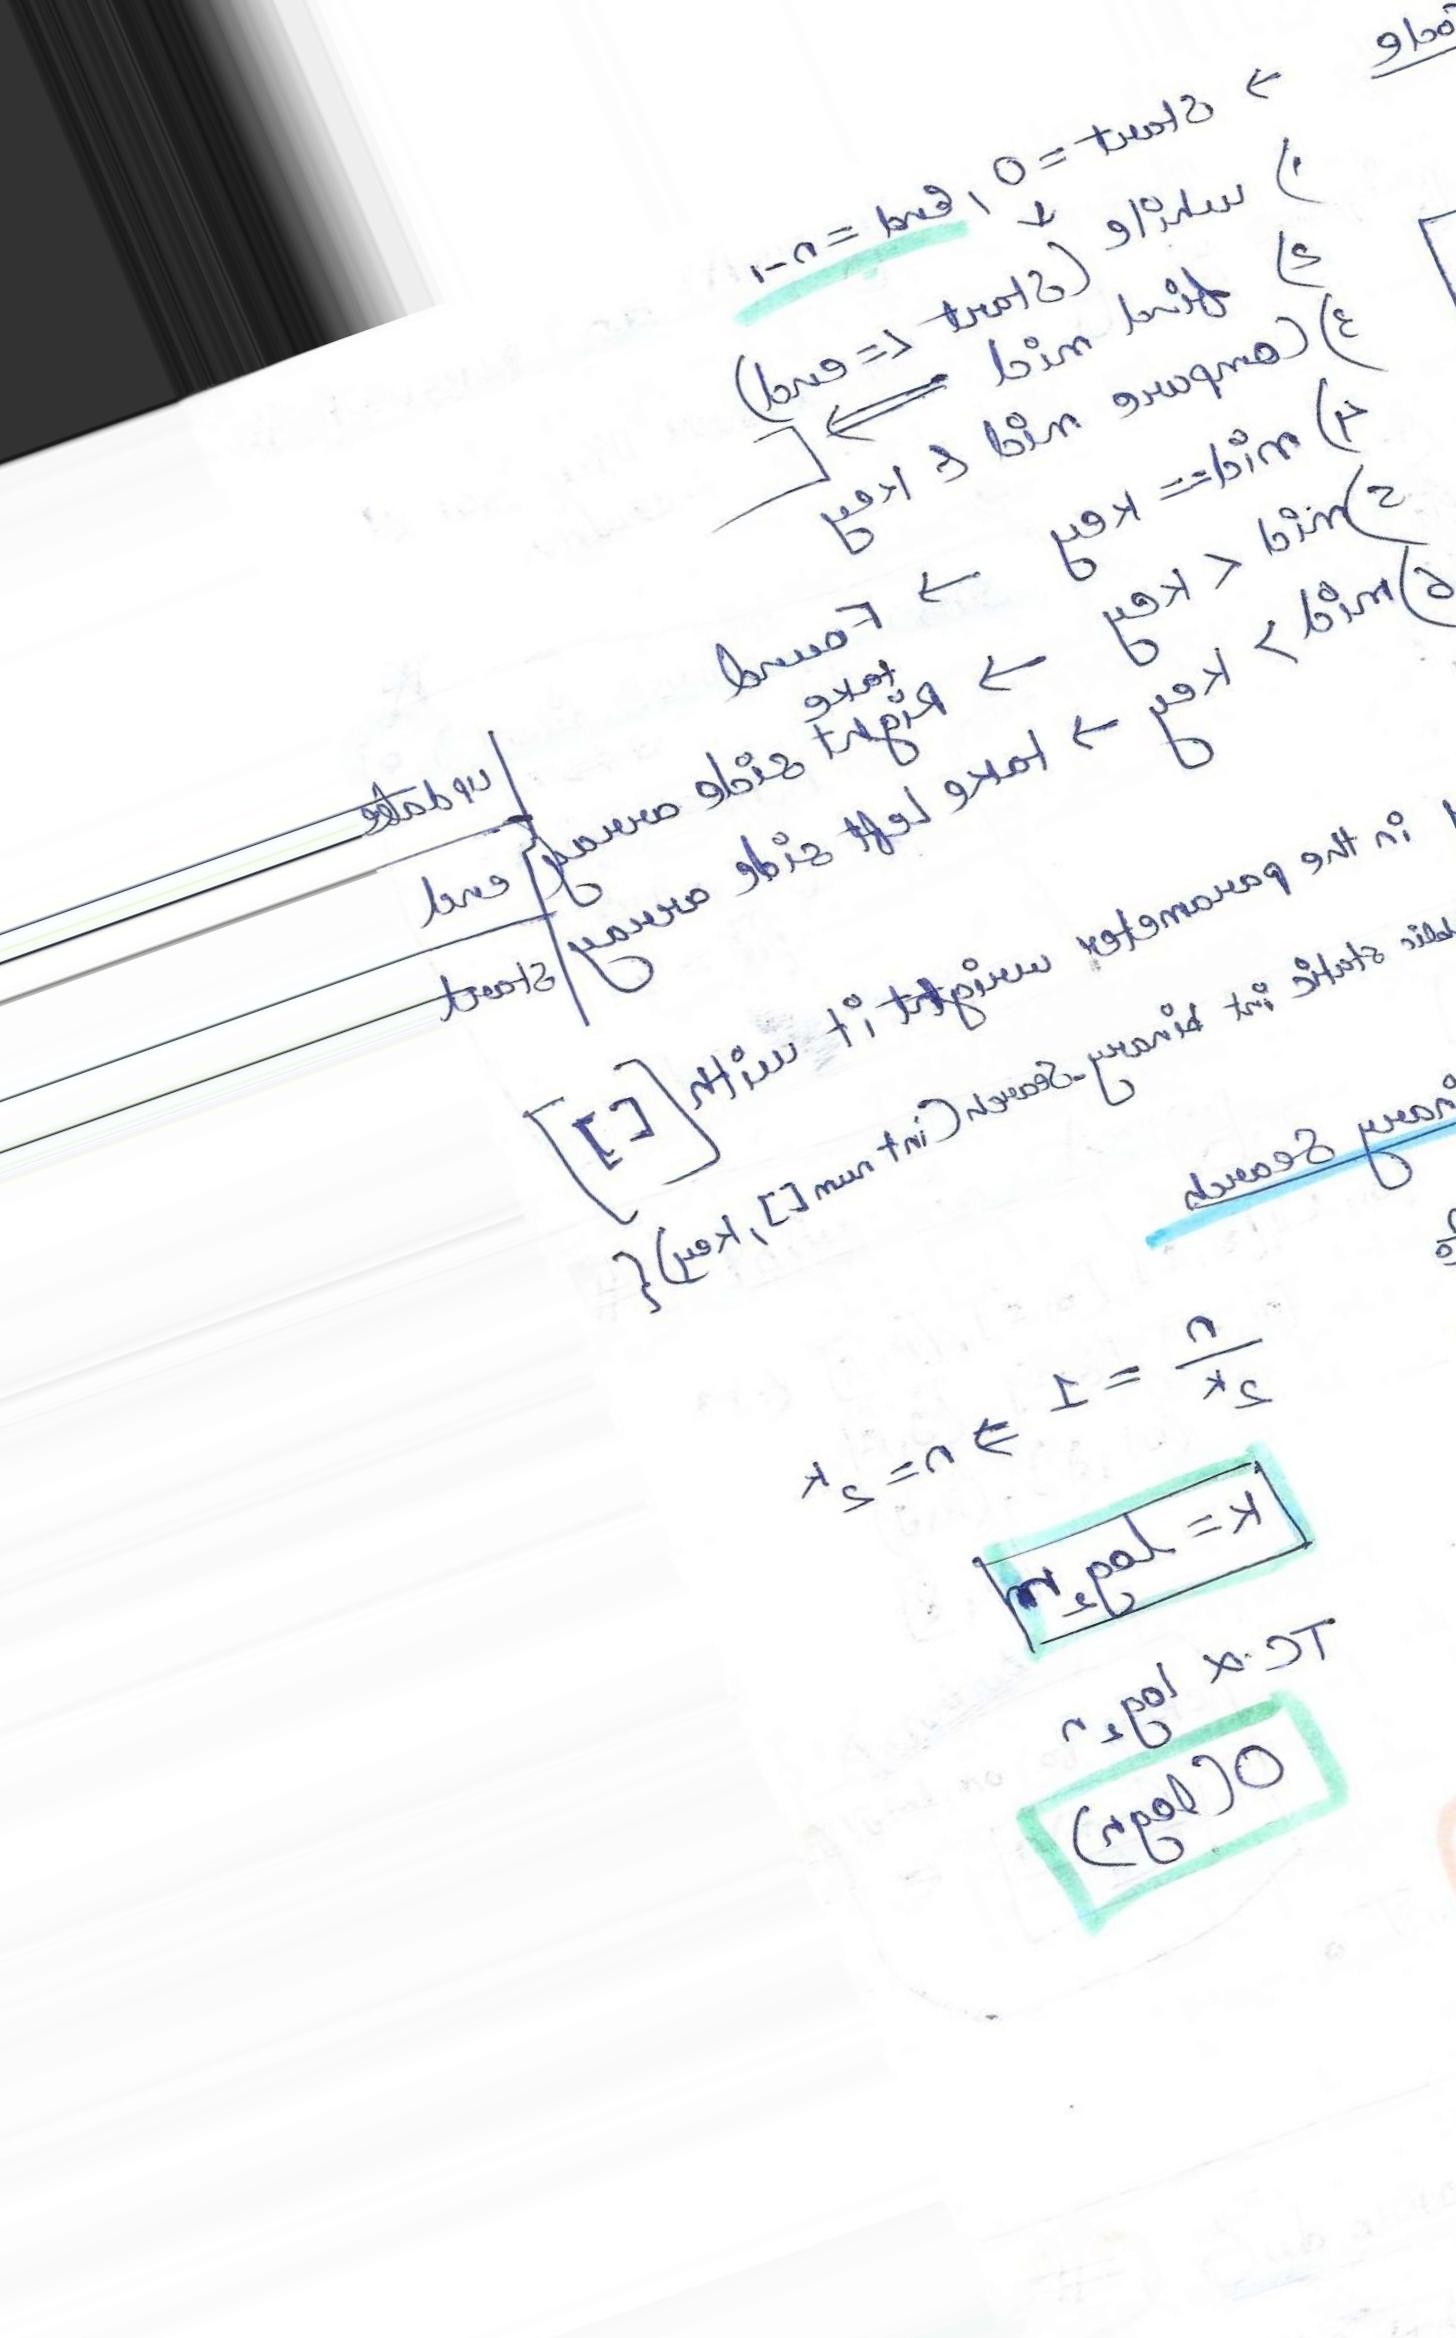 → Start = 0, End = n-1
1) while (Start <= end)
2) find mid
3) Compare mid & key
4) mid == key → Found
5) mid < key → take Right side array
6) mid > key → take Left side array
update
end
Start
in the parameter wright it with [[]]
static int binary-Search (int num [], key) {
Search
n/2^k = 1 ⇒ n = 2^k
K = log₂n
TC ∝ log₂n
O(log n)